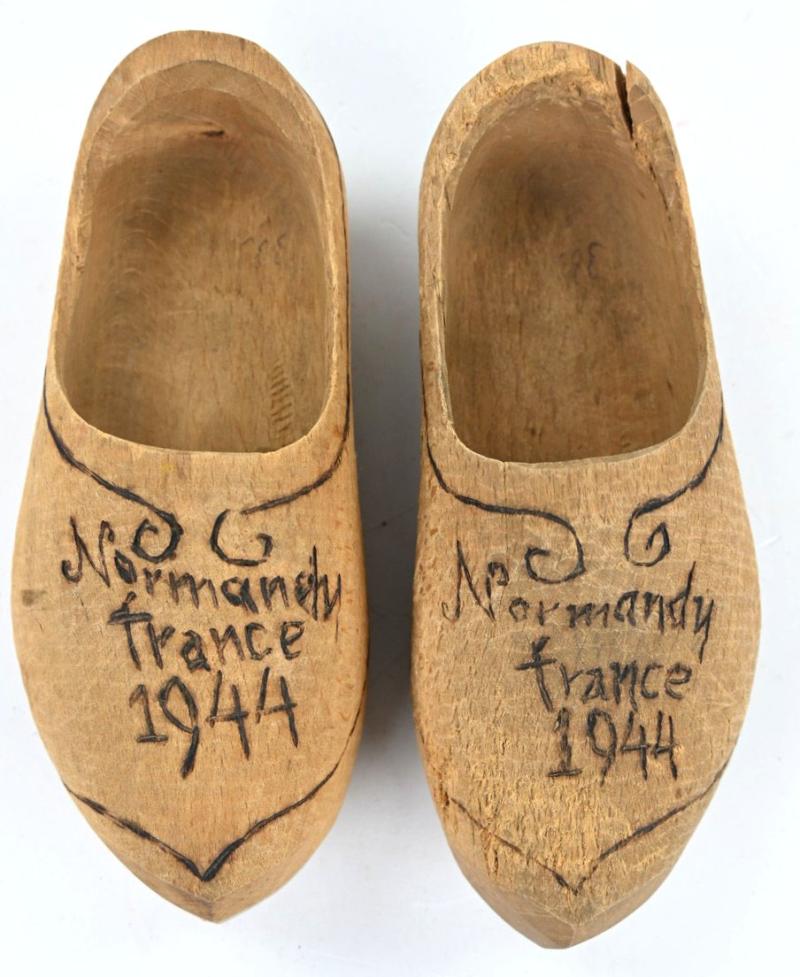 Normandy
france
1944
Normandy
france
1944